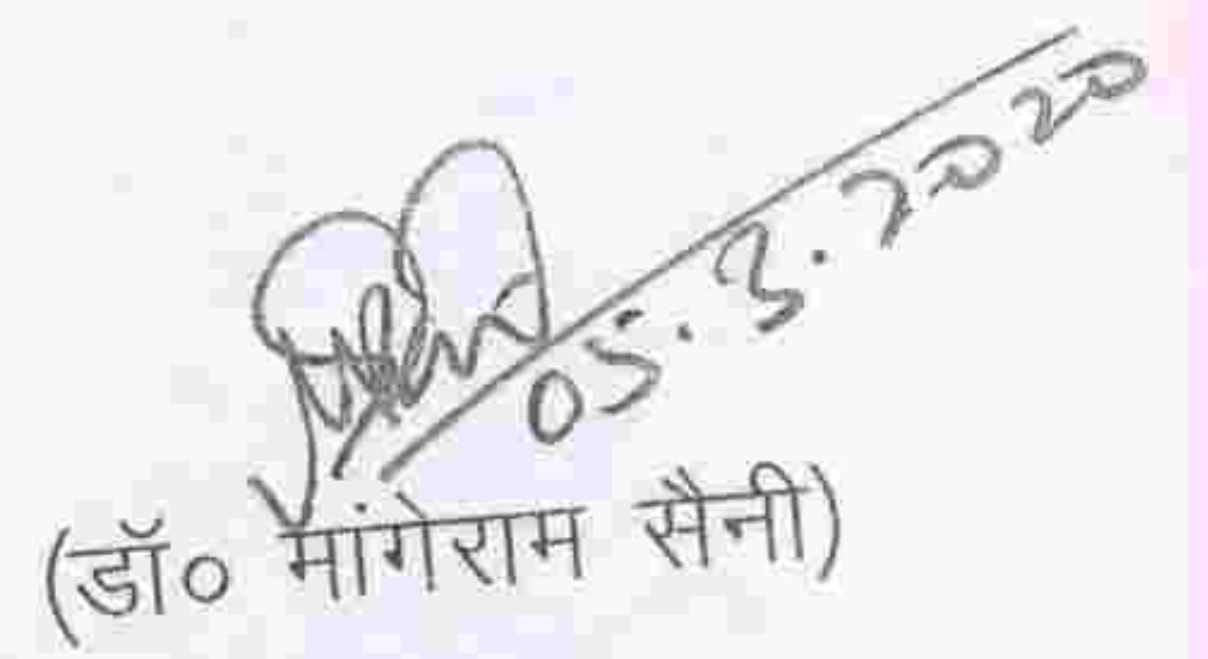 05.3.2020
(डॉ० मांगेराम सैनी)